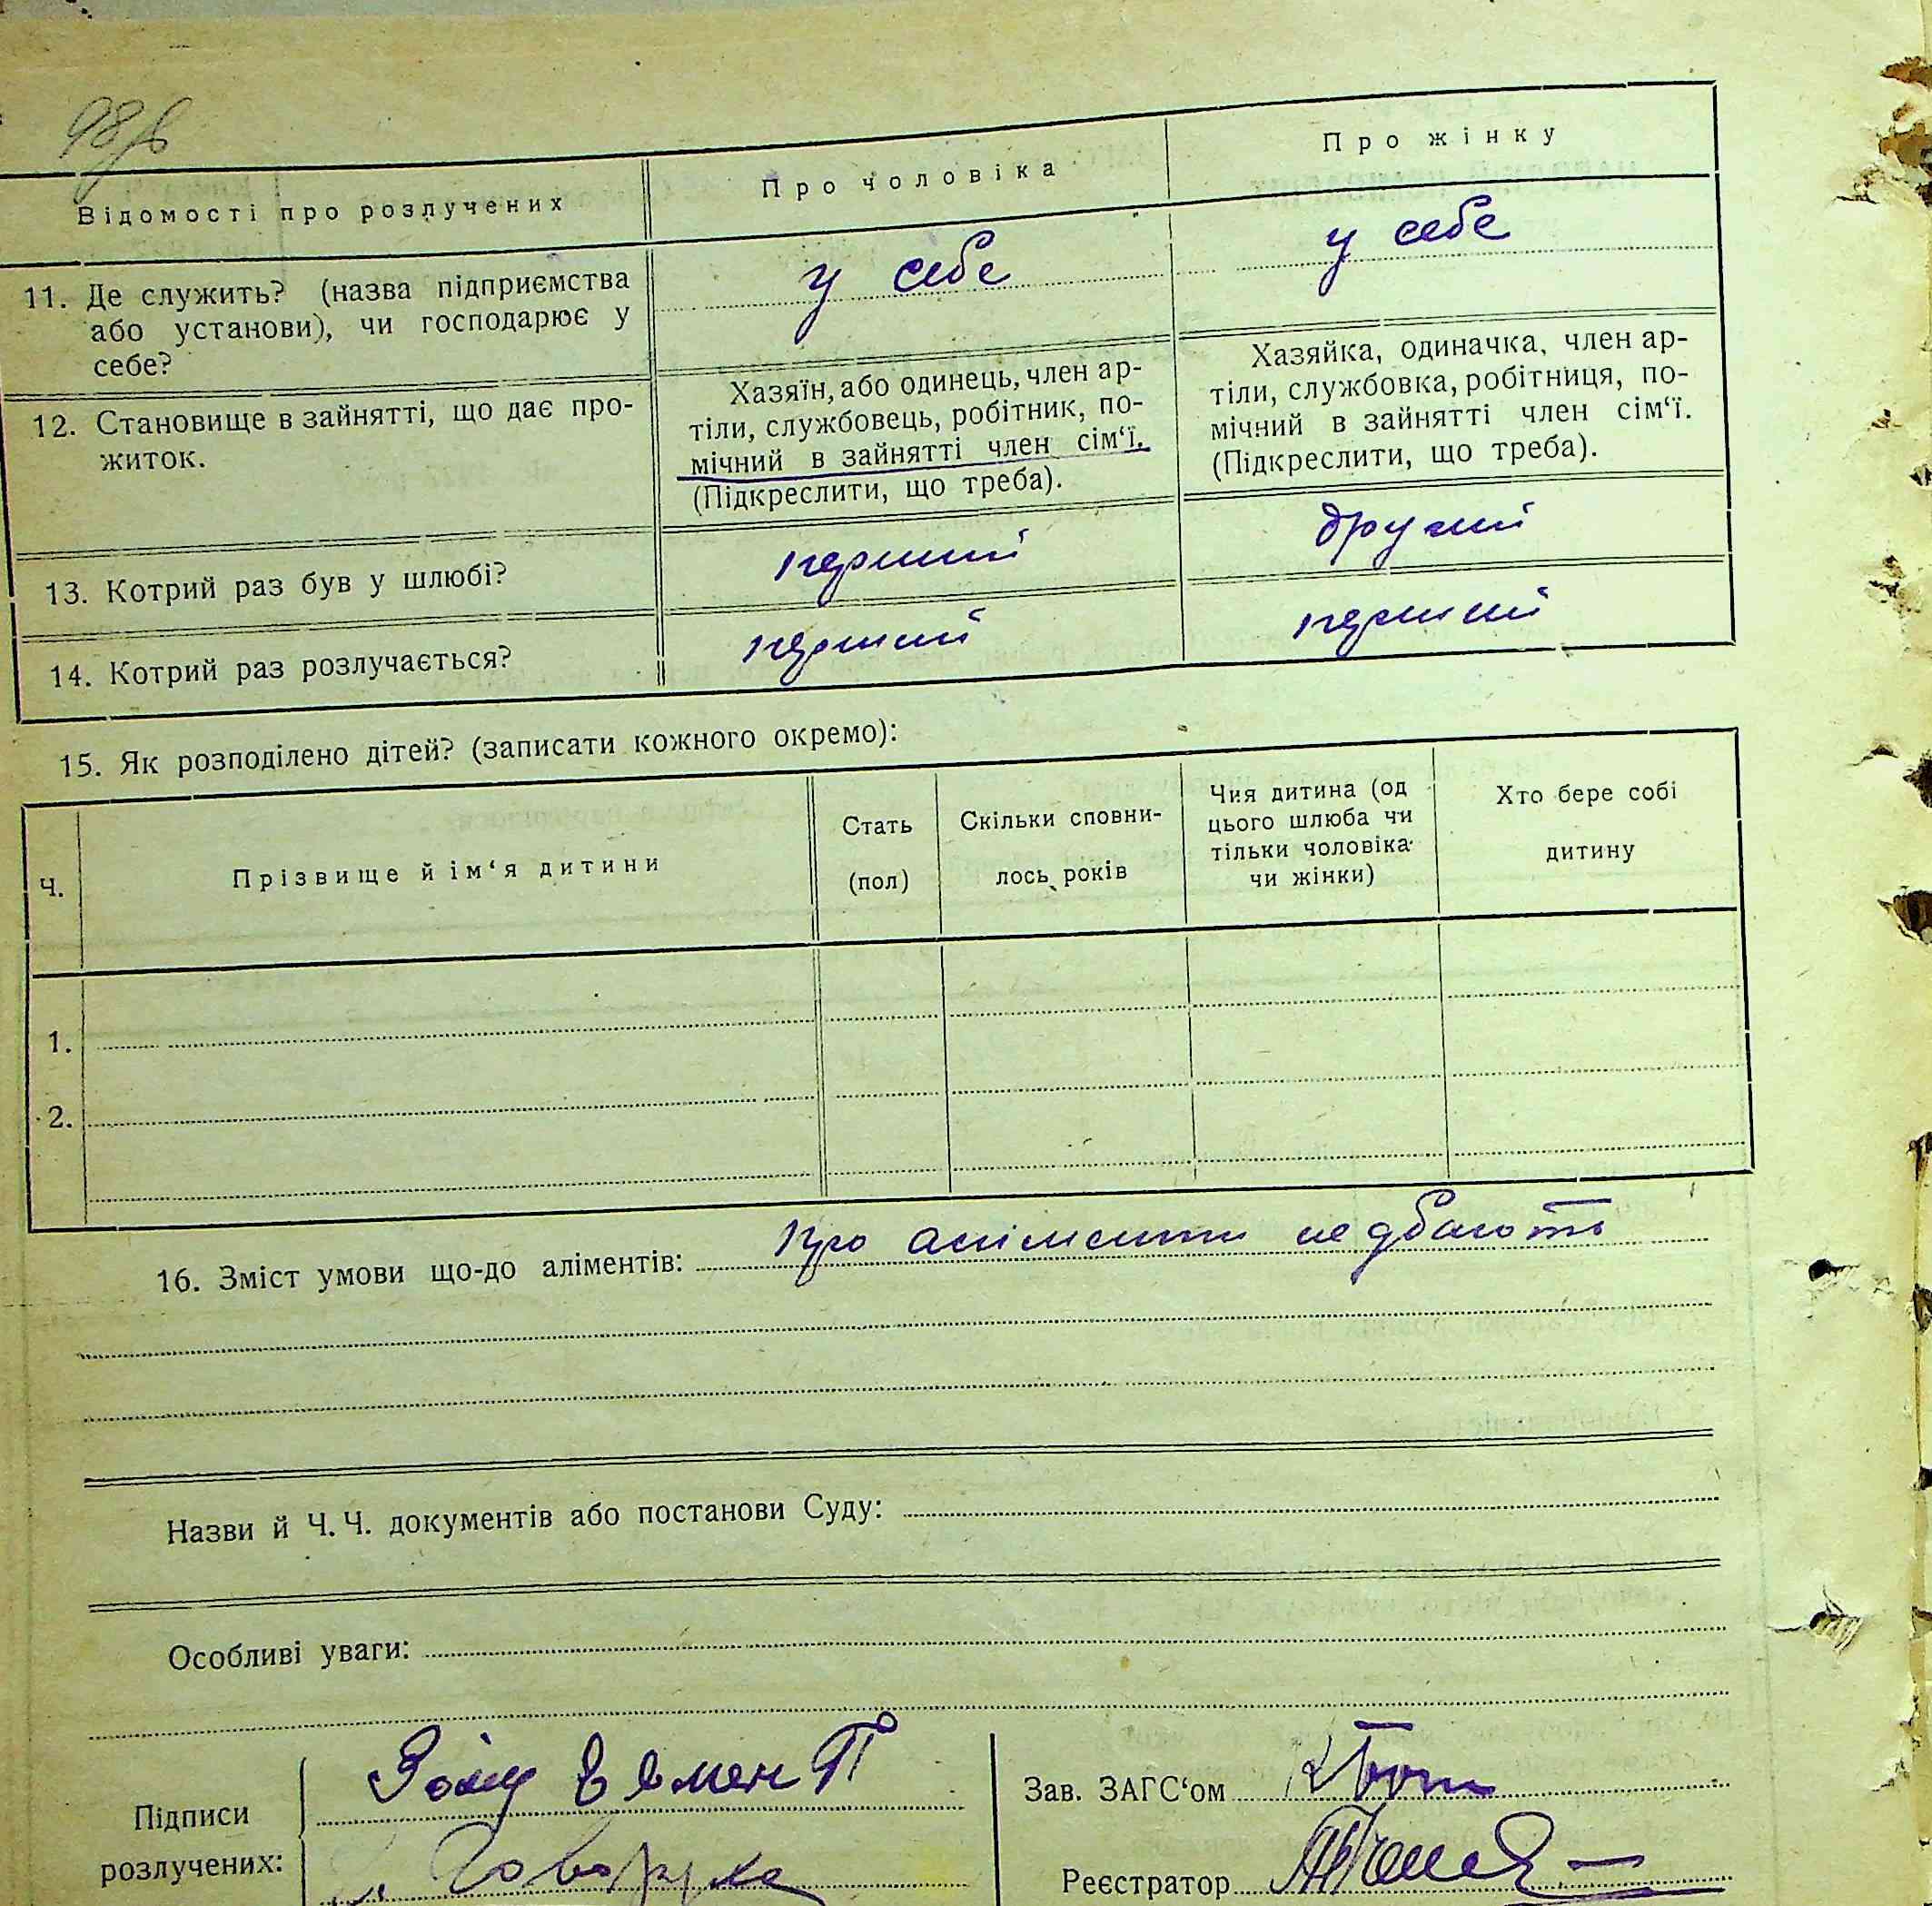 98
Відомості про розлучених
Про чоловіка
Про жінку
11. Де служить? (назва підприємства
або установи), чи господарює у
себе?
у себе
у себе
12. Становище в зайнятті, що дає про-
житок.
Хазяїн, або одинець, член ар-
тіли, службовець, робітник, по-
мічний в зайнятті член сім‘ї.
(Підкреслити, що треба).
Хазяйка, одиначка, член ар-
тіли, службовка, робітниця, по-
мічний в зайнятті член сім‘ї.
(Підкреслити, що треба).
13. Котрий раз був у шлюбі?
перший
другий
14. Котрий раз розлучається?
перший
перший
15. Як розподілено дітей? (записати кожного окремо):
Ч.
Прізвище й ім‘я дитини
Стать
(пол)
Скільки сповни-
лось років
Чия дитина (од
цього шлюба чи
тільки чоловіка
чи жінки)
Хто бере собі
дитину
1.
2.
16. Зміст умови що-до аліментів: Про аліменти не дбають
Назви й Ч. Ч. документів або постанови Суду:
Особливі уваги:
Підписи
розлучених:
Зав. ЗАГС‘ом
Реєстратор